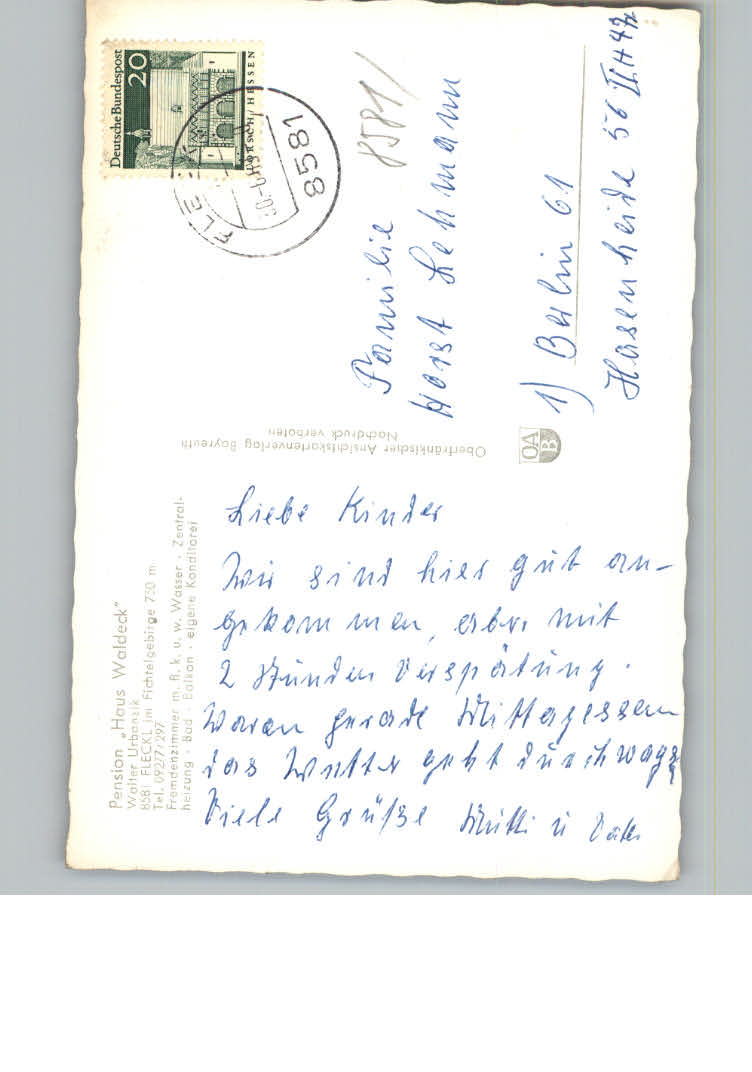 Pension „Haus Waldeck"
Walter Urbanzik
8581 FLECKL im Fichtelgebirge 750 m
Tel. 09277/297
Fremdenzimmer m. fl. k. u. w. Wasser · Zentral-
heizung · Bad · Balkon · eigene Konditorei
Liebe Kinder
Wir sind hier gut an-
gekommen, aber mit
2 Stunden Verspätung.
Waren gerade Mittagessen
das Wetter geht durchwags
Viele Grüße Mutti u Vater
Oberfränkischer Ansichtskartenverlag Bayreuth
Nachdruck verboten
OA
B
Deutsche Bundespost
20
LORSCH / HESSEN
8581
8581/
Familie
Horst Lehmann
1) Berlin 61
Hasenheide 56 II H